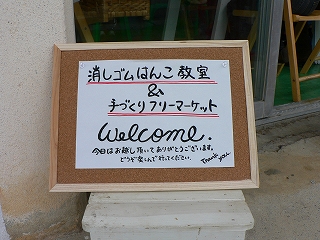 消しゴムはんこ教室
&
手づくりフリーマーケット
Welcome.
今日はお越し頂いてありがとうございます。
どうぞ楽しんで行ってください。
Thank you.